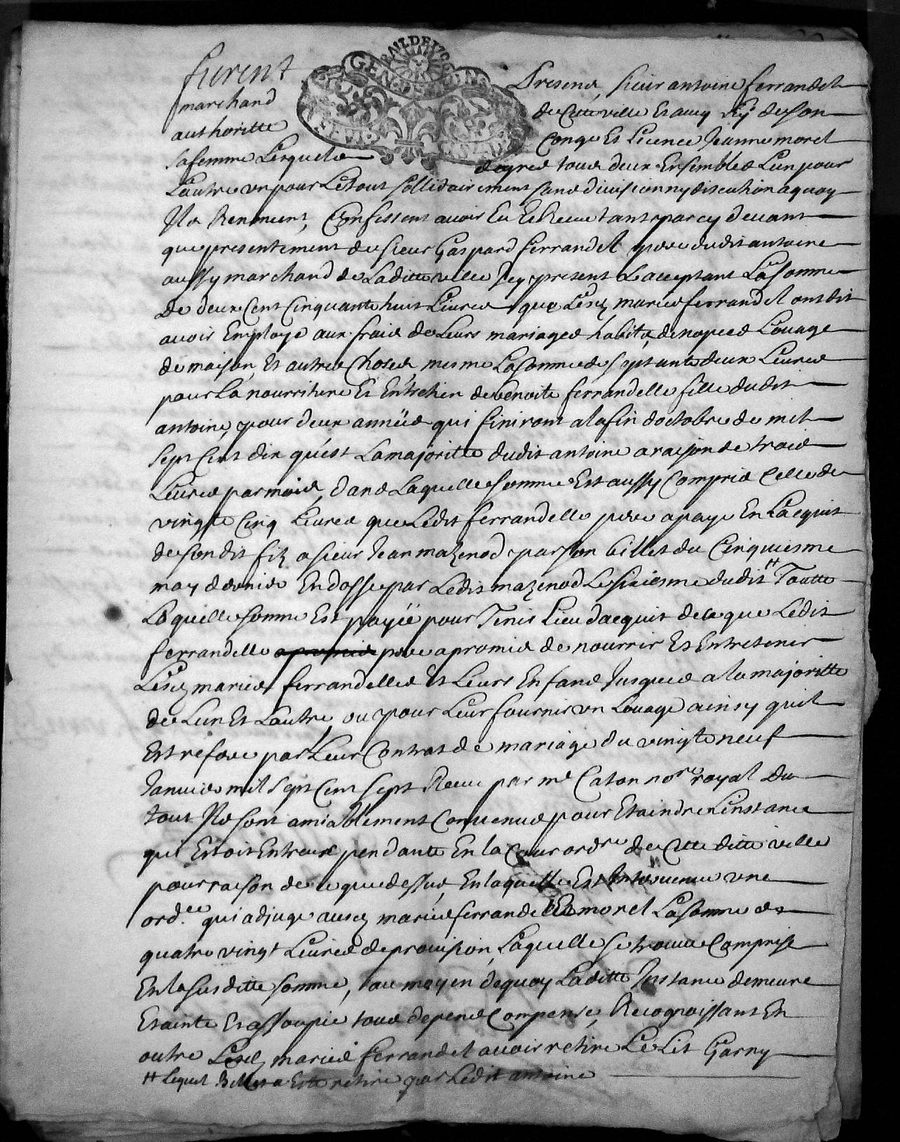 furent presens, sieur antoine ferrandel
marchand de cette ville Et avec luy de son
authoritte Congé Et Licence Jeanne morel
sa femme Lesquels de gré tous deux Ensembles Lun pour
Lautre un pour Le tout sollidairement sans division ny discution a quoy
Ils Renoncent, Confessent avoir Eu Et Receu tant par cy devant
que presentement du sieur Gaspard ferrandel pere dudit antoine
aussy marchand de Laditte ville Icy present Et acceptant La somme
de deux Cent Cinquante huit Livres que Lesd. maries ferrandel ont dit
avoir Employé aux frais de Leurs mariages habits de nopces Louage
de maison Et autres Choses, mesme La somme de septante deux Livres
pour La nourriture Et Entretien de benoite ferrandelle fille dudit
antoine, pour deux années qui finiront a la fin d'octobre de mil
sept Cent dix qu'est La majoritte dudit antoine a raison de trois
Livres par mois, dans Laquelle somme Est aussy Compris Celle de
vingt Cinq Livres que Ledit ferrandelle pere a payé En Lacquit
de son dit fils a sieur Jean mazenod par son billet du Cinquiesme
may dernier Endossé par Ledit mazenod Le sixiesme dudit # Toutte
Laquelle somme Est payée pour Tenir Lieu d'acquit de ce que Ledit
ferrandelle a promis pere a promis de nourrir Et Entretenir
Lesd. maries ferrandelles Et Leurs Enfans Jusques a la majoritte
de Lun Et Lautre ou pour Leur fournir un Louage ainsy quil
Est refore par Leur Contrat de mariage du vingt neuf
Janvier mil sept Cent sept Receu par me Caton nore royal du
tout Ils sont amiablement Convenus pour Etaindre Linstance
qui Estoit Entreux pendante En la Cour ordre de Cette ditte ville
pour raison de ce que dessus En laquelle Est Intervenue une
ordce qui adjuge ausd. maries ferrandel Et morel La somme de
quatre vingt Livres de provision, Laquelle se trouve Comprise
En la susditte somme, au moyen de quoy Laditte Instance demeure
Etainte Et assoupie tous depens Compensés, Recognoissant En
outre Lesd. maries ferrandel avoir retiré Le Lit Garny
# Lequel Billet a Esté retiré par Ledit antoine
GEN